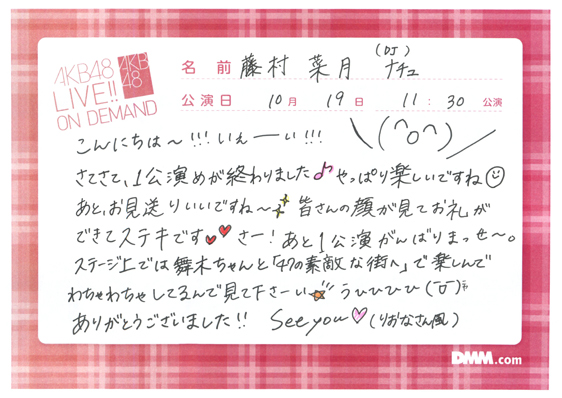 AKB48
LIVE!!
ON DEMAND
AKB
48
名前 藤村 菜月 (DJ) ナチュ
公演日 10月 19日 11:30 公演
こんにちは〜!!! いぇーーい!!! \(^o^)/
さてさて、1公演めが終わりました♪やっぱり楽しいですね☺
あと、お見送りいいですね〜 皆さんの顔が見てお礼が
できてステキです♥♥ さー!あと1公演がんばりまっせ〜。
ステージ上では舞木ちゃんと「47の素敵な街へ」で楽しんで
わちゃわちゃしてるんで見て下さーい うひひひひ
ありがとうございました!! See you♡(りおなさん風)
DMM.com